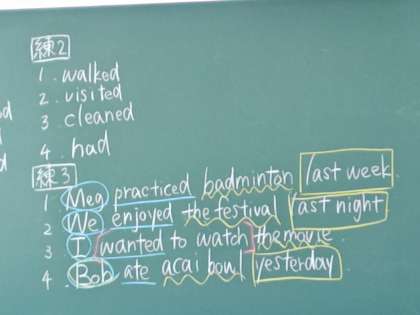 練2
1. walked
2. visited
3. cleaned
4. had
練3
1 Meg practiced badminton last week.
2 We enjoyed the festival last night
3 I wanted to watch the movie.
4. Bob ate acai bowl yesterday